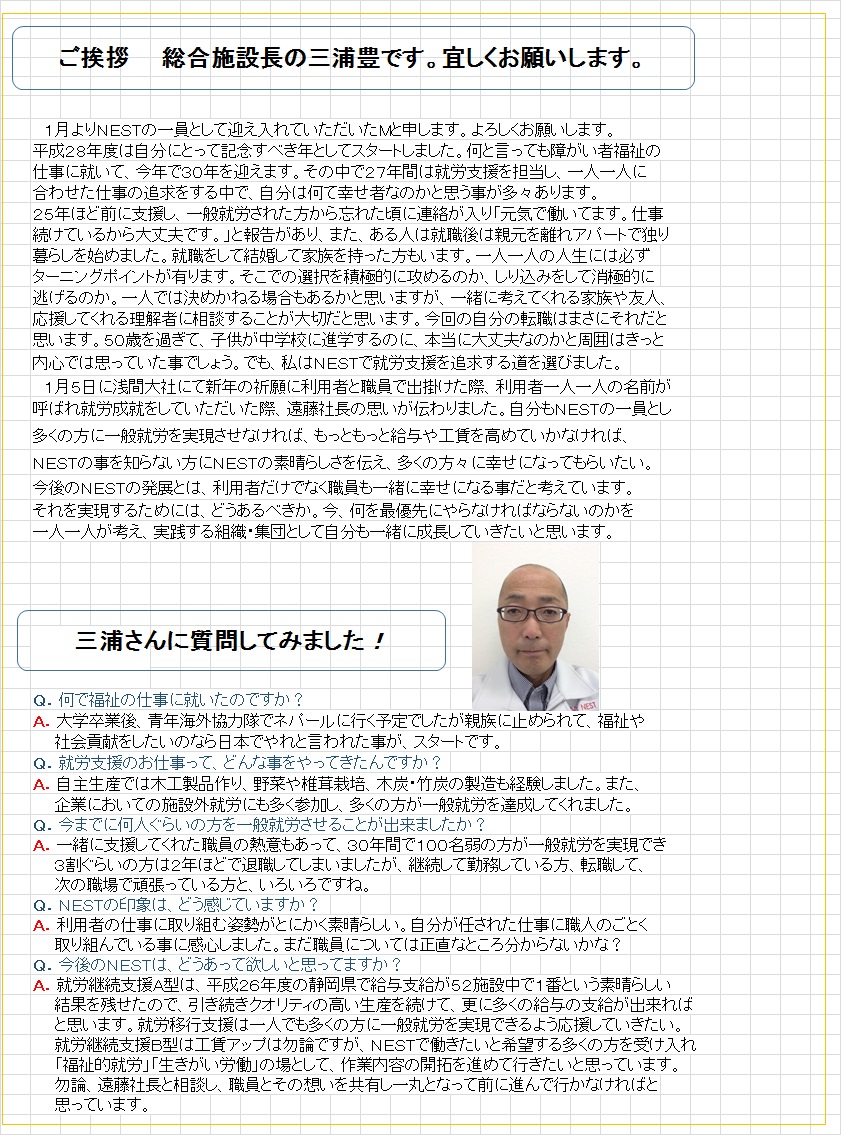 ご挨拶　総合施設長の三浦豊です。宜しくお願いします。
1月よりNESTの一員として迎え入れていただいたMと申します。よろしくお願いします。
平成28年度は自分にとって記念すべき年としてスタートしました。何と言っても障がい者福祉の
仕事に就いて、今年で30年を迎えます。その中で27年間は就労支援を担当し、一人一人に
合わせた仕事の追求をする中で、自分は何て幸せ者なのかと思う事が多々あります。
25年ほど前に支援し、一般就労された方から忘れた頃に連絡が入り「元気で働いてます。仕事
続けているから大丈夫です。」と報告があり、また、ある人は就職後は親元を離れアパートで独り
暮らしを始めました。就職をして結婚して家族を持った方もいます。一人一人の人生には必ず
ターニングポイントが有ります。そこでの選択を積極的に攻めるのか、しり込みをして消極的に
逃げるのか。一人では決めかねる場合もあるかと思いますが、一緒に考えてくれる家族や友人、
応援してくれる理解者に相談することが大切だと思います。今回の自分の転職はまさにそれだと
思います。50歳を過ぎて、子供が中学校に進学するのに、本当に大丈夫なのかと周囲はきっと
内心では思っていた事でしょう。でも、私はNESTで就労支援を追求する道を選びました。
1月5日に浅間大社にて新年の祈願に利用者と職員で出掛けた際、利用者一人一人の名前が
呼ばれ就労成就をしていただいた際、遠藤社長の思いが伝わりました。自分もNESTの一員とし
多くの方に一般就労を実現させなければ、もっともっと給与や工賃を高めていかなければ、
NESTの事を知らない方にNESTの素晴らしさを伝え、多くの方々に幸せになってもらいたい。
今後のNESTの発展とは、利用者だけでなく職員も一緒に幸せになる事だと考えています。
それを実現するためには、どうあるべきか。今、何を最優先にやらなければならないのかを
一人一人が考え、実践する組織・集団として自分も一緒に成長していきたいと思います。
NEST
三浦さんに質問してみました！
Q. 何で福祉の仕事に就いたのですか？
A. 大学卒業後、青年海外協力隊でネパールに行く予定でしたが親族に止められて、福祉や
社会貢献をしたいのなら日本でやれと言われた事が、スタートです。
Q. 就労支援のお仕事って、どんな事をやってきたんですか？
A. 自主生産では木工製品作り、野菜や椎茸栽培、木炭・竹炭の製造も経験しました。また、
企業においての施設外就労にも多く参加し、多くの方が一般就労を達成してくれました。
Q. 今までに何人ぐらいの方を一般就労させることが出来ましたか？
A. 一緒に支援してくれた職員の熱意もあって、30年間で100名弱の方が一般就労を実現でき
3割ぐらいの方は2年ほどで退職してしまいましたが、継続して勤務している方、転職して、
次の職場で頑張っている方と、いろいろですね。
Q. NESTの印象は、どう感じていますか？
A. 利用者の仕事に取り組む姿勢がとにかく素晴らしい。自分が任された仕事に職人のごとく
取り組んでいる事に感心しました。まだ職員については正直なところ分からないかな？
Q. 今後のNESTは、どうあって欲しいと思ってますか？
A. 就労継続支援A型は、平成26年度の静岡県で給与支給が52施設中で1番という素晴らしい
結果を残せたので、引き続きクオリティの高い生産を続けて、更に多くの給与の支給が出来れば
と思います。就労移行支援は一人でも多くの方に一般就労を実現できるよう応援していきたい。
就労継続支援B型は工賃アップは勿論ですが、NESTで働きたいと希望する多くの方を受け入れ
「福祉的就労」「生きがい労働」の場として、作業内容の開拓を進めて行きたいと思っています。
勿論、遠藤社長と相談し、職員とその想いを共有し一丸となって前に進んで行かなければと
思っています。